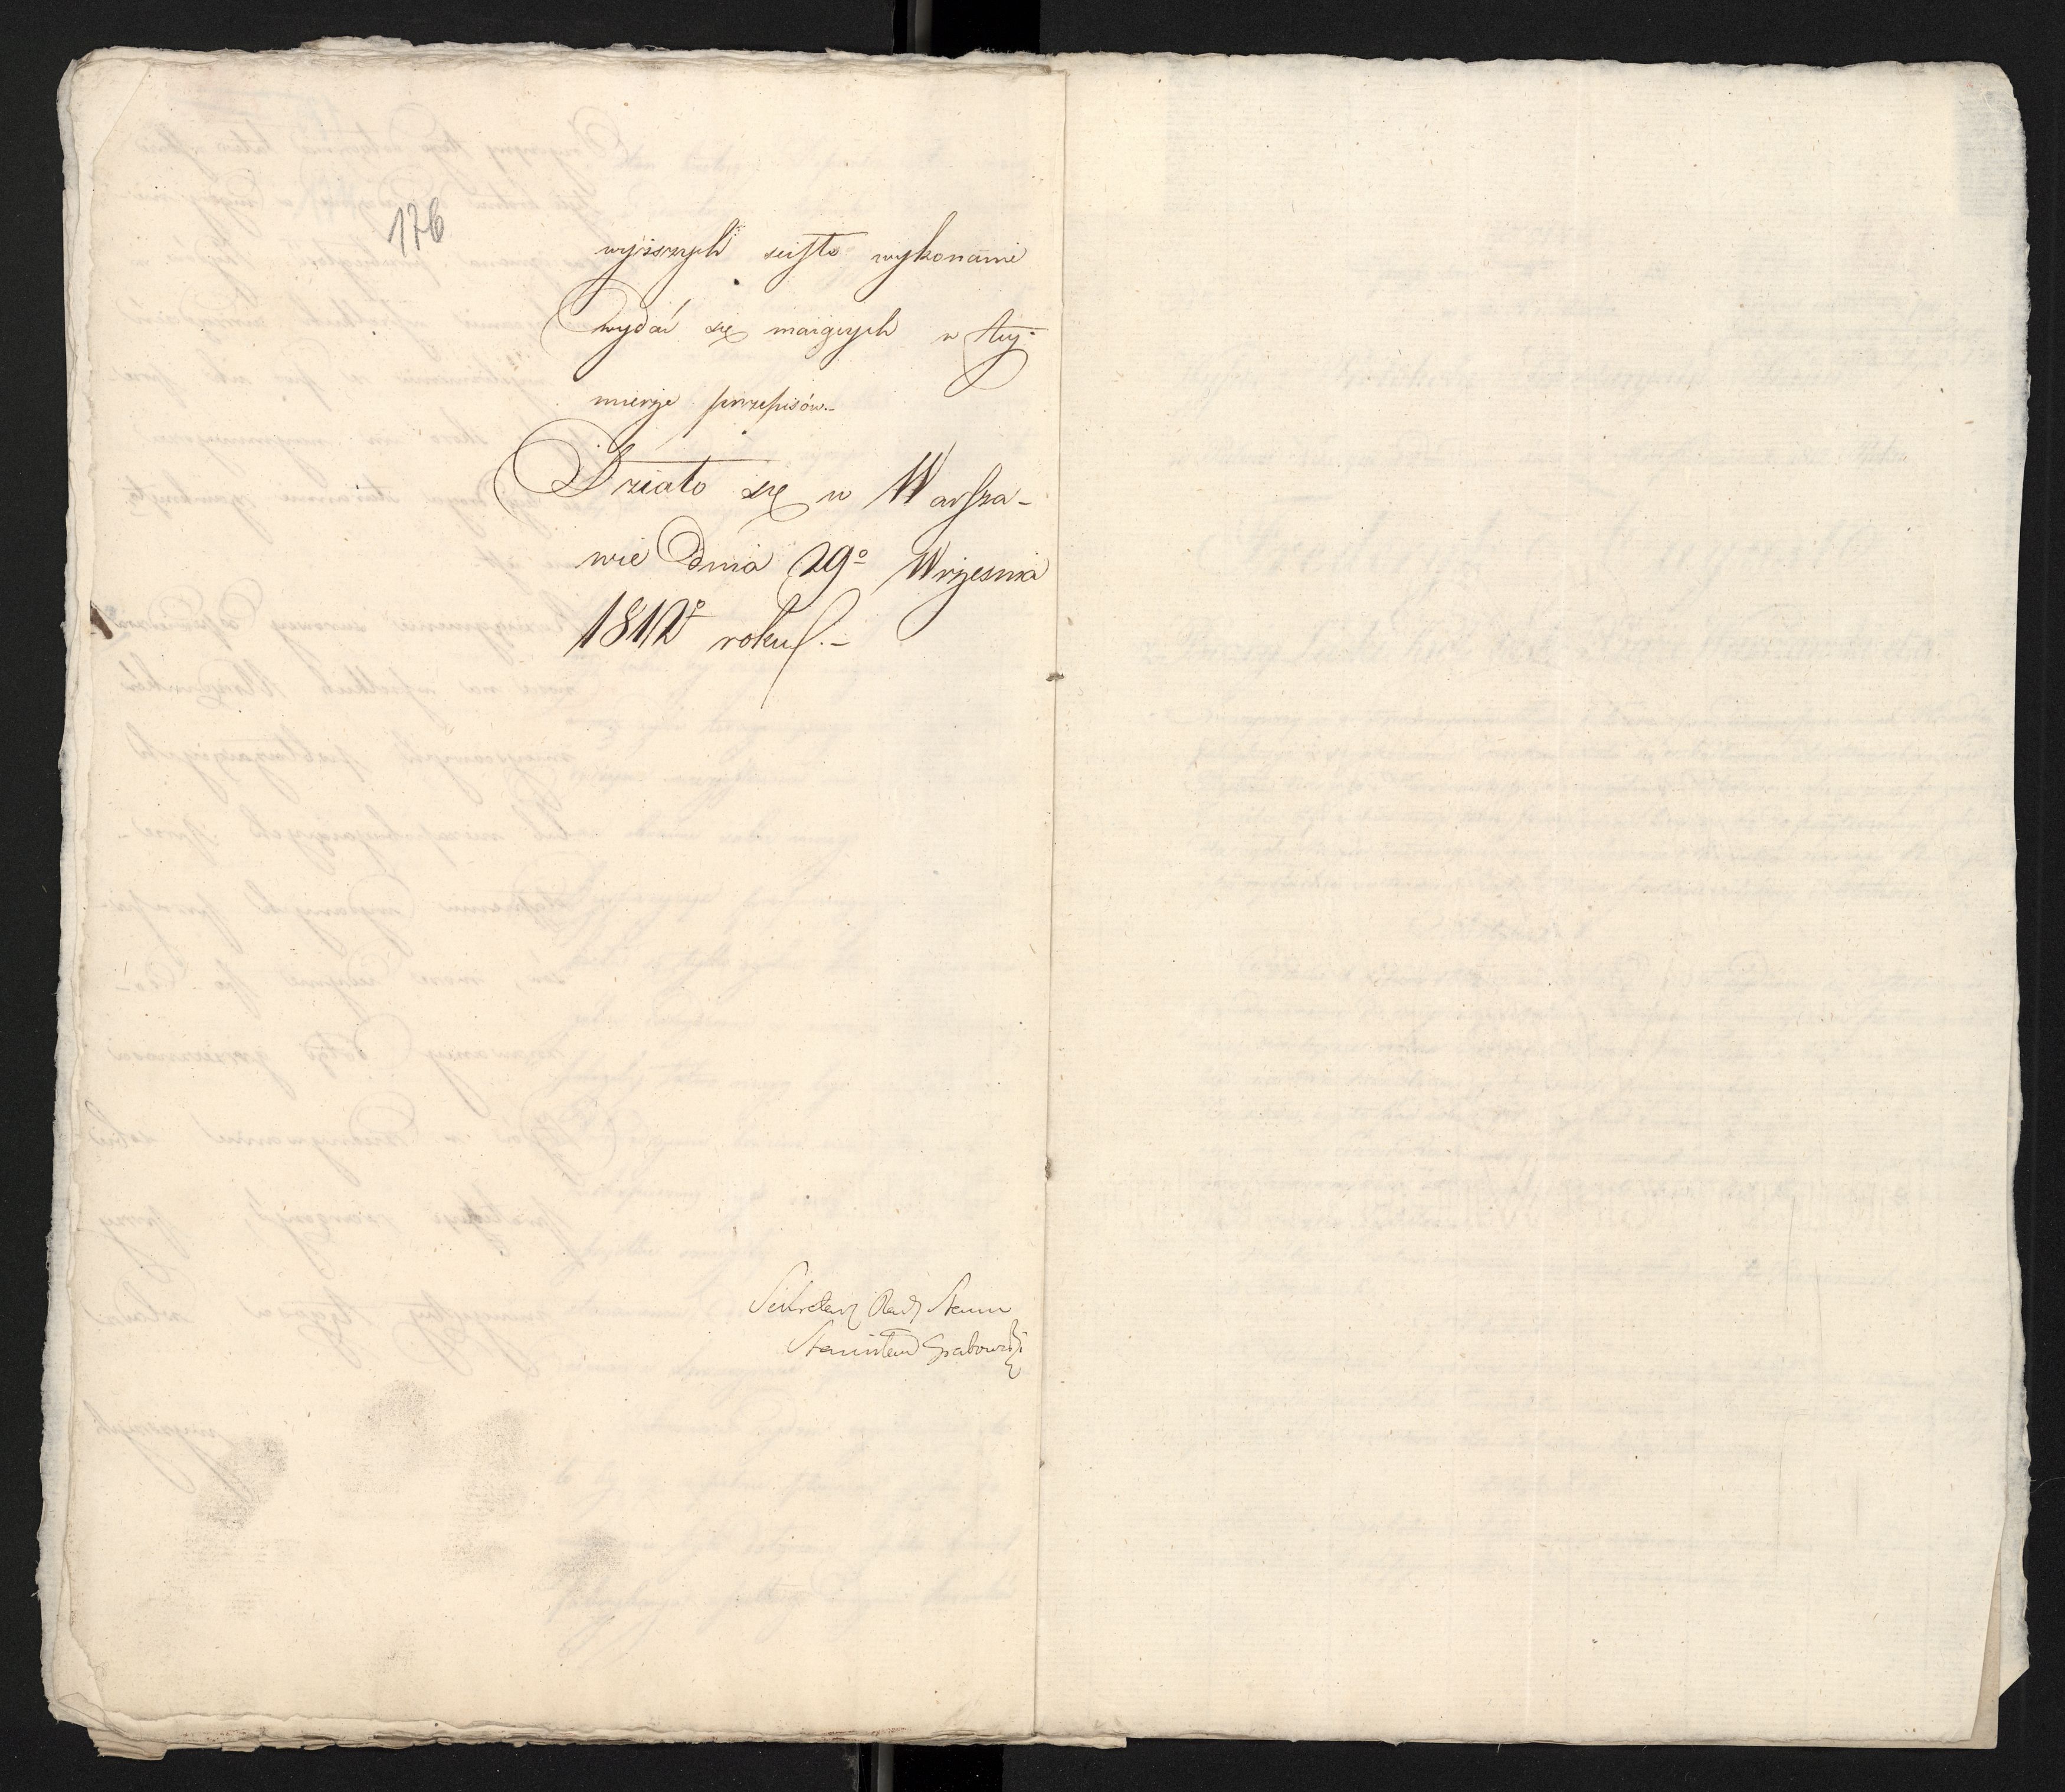 176
wyższych scisłe wykonanie
wydać się maiących w tey
mierze przepisów.-
Działo się w Warsza-
wie dnia 29º Września
1812º roku.-
Sekretarz Rady Stanu
Stanisław Grabowski